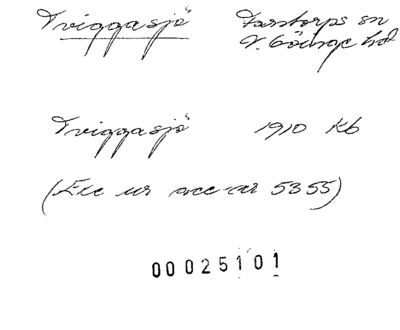 Tviggasjö Farstorps sn
V. Göinge hd
Tviggasjö 1910 Kb
(Exc ur acc-nr 5355)
00025101